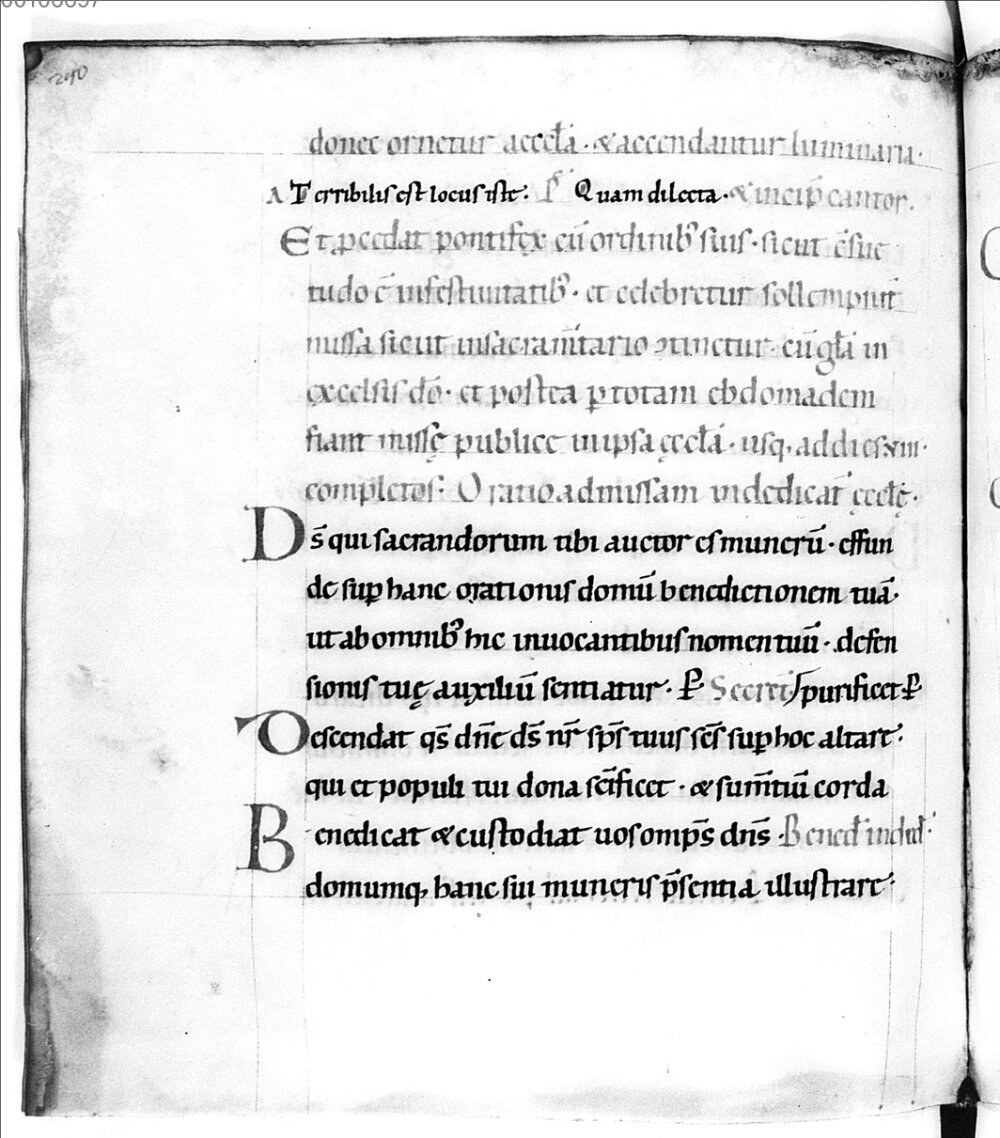 240
donec ornetur aeccl̄a · & accendantur luminaria ·
A Terribilis est locus iste: P̄ Quam dilecta · & incip̄ cantor.
Et p̱cedat pontifex cū ordinib; suis · sicut c̄sue
tudo ē in festiuitatib; · et celebretur sollempnit̄
missa sicut in sacram̄tario ↄtinetur · cū gl̄i in
excelsis dō · et postea p̱ totam ebdomadem
fiant missę publice in ipsa ęccl̄a · usq; ad dies xiii ·
completos: Oratio ad missam in dedicat̄ ęccl̄ę ·
Ds̄ qui sacrandorum tibi auctor es munerū · effun
de sup̱ hanc orationis domū benedictionem tuā ·
ut ab omnib; hic inuocantibus nomen tuū · defen
sionis tuę auxiliū sentiatur · P̱ Secret̄ purificet P̱
Descendat qs̄ dn̄e ds̄ nr̄ sp̄s tuus sc̄s sup̱ hoc altare:
qui et populi tui dona sc̄ificet · & sum̄tiū corda
Benedicat & custodiat uos omp̄s dn̄s · Bened̄ in ded̄ ·
domumq; hanc sui muneris p̄sentia illustrare: